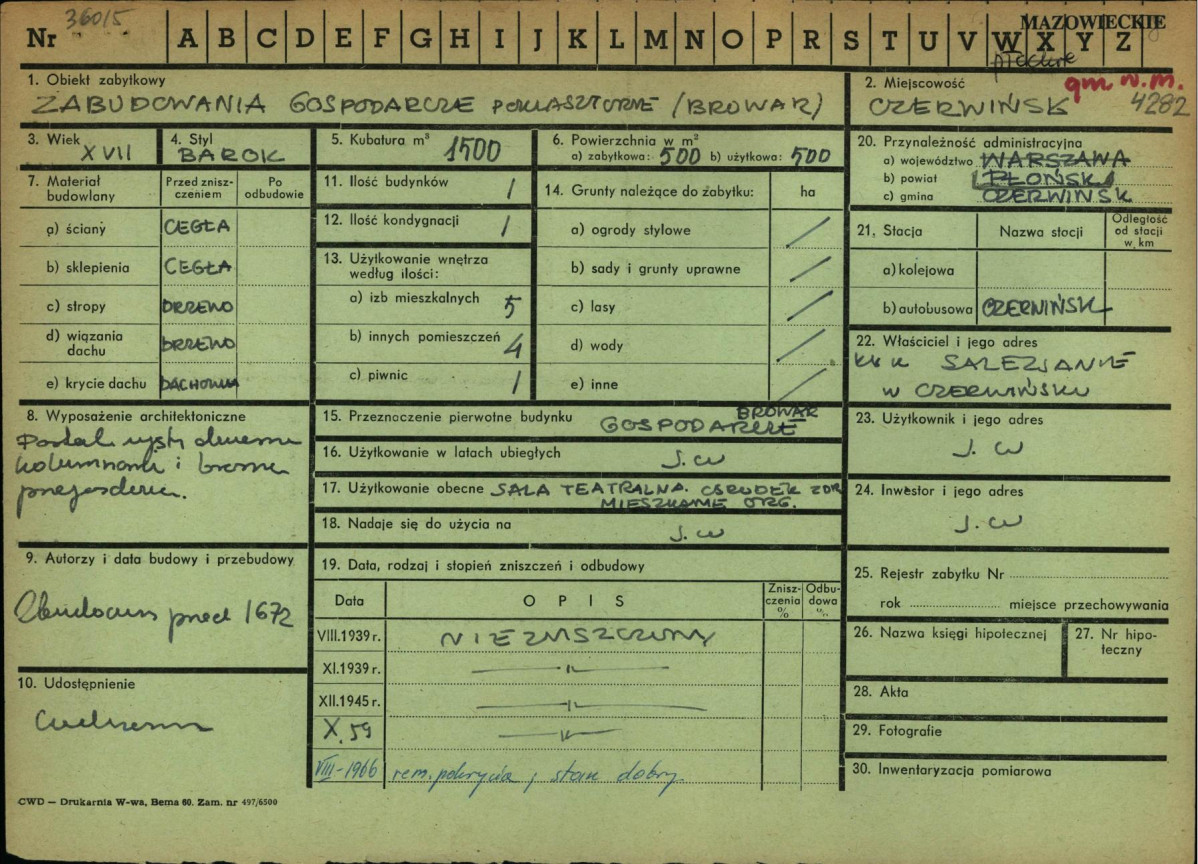 Nr 36015 A B C D E F G H I J K L M N O P R S T U V W X Y Z
MAZOWIECKIE
1. Obiekt zabytkowy
ZABUDOWANIA GOSPODARCZE POKLASZTORNE (BROWAR)
2. Miejscowość gm w.m.
CZERWIŃSK 4282
3. Wiek
XVII
4. Styl
BAROK
5. Kubatura m³ 1500
6. Powierzchnia w m²
a) zabytkowa: 500 b) użytkowa: 500
20. Przynależność administracyjna
a) województwo WARSZAWA
b) powiat PŁOŃSK
c) gmina CZERWIŃSK
7. Materiał budowlany
Przed zniszczeniem
Po odbudowie
a) ściany CEGŁA
b) sklepienia CEGŁA
c) stropy DRZEWO
d) wiązania dachu DRZEWO
e) krycie dachu DACHÓWKA
11. Ilość budynków 1
12. Ilość kondygnacji 1
13. Użytkowanie wnętrza według ilości:
a) izb mieszkalnych 5
b) innych pomieszczeń 4
c) piwnic 1
14. Grunty należące do zabytku: ha
a) ogrody stylowe /
b) sady i grunty uprawne /
c) lasy /
d) wody /
e) inne /
21. Stacja
Nazwa stacji
Odległość od stacji w. km
a) kolejowa
b) autobusowa CZERWIŃSK
22. Właściciel i jego adres
SALEZJANIE
W CZERWIŃSKU
8. Wyposażenie architektoniczne
Portal
kolumnami i
15. Przeznaczenie pierwotne budynku BROWAR
GOSPODARCZE
16. Użytkowanie w latach ubiegłych J. W
17. Użytkowanie obecne SALA TEATRALNA. OŚRODEK ZDR
MIESZKANIE ORG.
18. Nadaje się do użycia na J. W
23. Użytkownik i jego adres
J. W
24. Inwestor i jego adres
J. W
9. Autorzy i data budowy i przebudowy
przed 1672
10. Udostępnienie
19. Data, rodzaj i stopień zniszczeń i odbudowy
Data
OPIS
Zniszczenia %
Odbudowa %
VIII.1939 r. NIEZNISZCZONY
XI.1939 r. — 〃 —
XII.1945 r. — 〃 —
X.59 — 〃 —
VIII-1966 rem. pokrycia, stan dobry.
25. Rejestr zabytku Nr
rok miejsce przechowywania
26. Nazwa księgi hipotecznej
27. Nr hipoteczny
28. Akta
29. Fotografie
30. Inwentaryzacja pomiarowa
CWD — Drukarnia W-wa, Bema 60. Zam. nr 497/6500